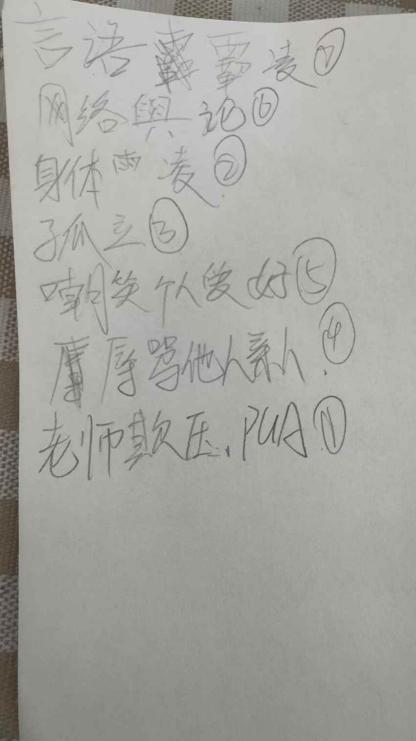 言语霸凌⑦
网络舆论⑥
身体雨凌②
孤立③
嘲笑个人爱好⑤
辱骂他人亲人.④
老师欺压、PUA①